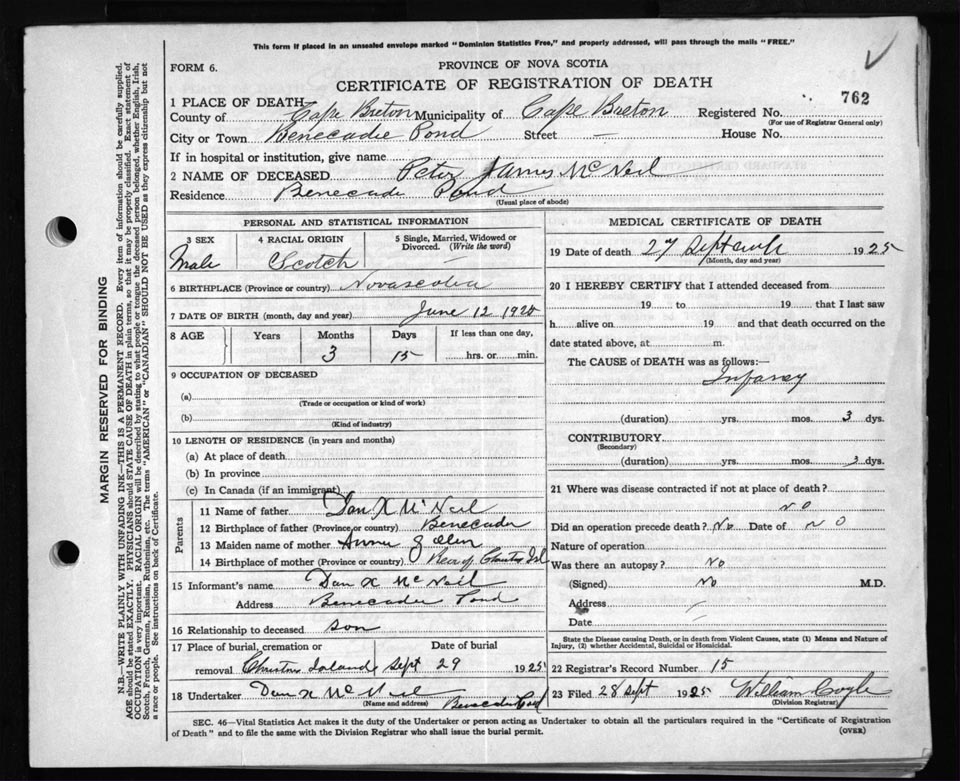 This form if placed in an unsealed envelope marked "Dominion Statistics Free," and properly addressed, will pass through the mails "FREE."
PROVINCE OF NOVA SCOTIA
FORM 6.
CERTIFICATE OF REGISTRATION OF DEATH
762
1 PLACE OF DEATH
County of Cape Breton Municipality of Cape Breton Registered No.
(For use of Registrar General only)
City or Town Benecadie Pond Street — House No.
If in hospital or institution, give name
2 NAME OF DECEASED Peter James McNeil
Residence Benecadie Pond
(Usual place of abode)
PERSONAL AND STATISTICAL INFORMATION
3 SEX 4 RACIAL ORIGIN 5 Single, Married, Widowed or Divorced. (Write the word)
Male Scotch —
6 BIRTHPLACE (Province or country) Novascotia
7 DATE OF BIRTH (month, day and year) June 12 1925
8 AGE Years Months Days If less than one day,
3 15 hrs. or min.
9 OCCUPATION OF DECEASED
(a)
(Trade or occupation or kind of work)
(b)
(Kind of industry)
10 LENGTH OF RESIDENCE (in years and months)
(a) At place of death
(b) In province
(c) In Canada (if an immigrant)
Parents
11 Name of father Dan X McNeil
12 Birthplace of father (Province or country) Benecadie
13 Maiden name of mother Annie
14 Birthplace of mother (Province or country) Rear of Christmas Isl
15 Informant's name Dan X McNeil
Address Benecadie Pond
16 Relationship to deceased son
17 Place of burial, cremation or Date of burial
removal Christmas Island Sept 29 1925
18 Undertaker Dan X McNeil
(Name and address) Benecadie Pond
MEDICAL CERTIFICATE OF DEATH
19 Date of death 27 September 1925
(Month, day and year)
20 I HEREBY CERTIFY that I attended deceased from
19 to 19 that I last saw
h alive on 19 and that death occurred on the
date stated above, at m.
The CAUSE of DEATH was as follows:—
Infancy
(duration) yrs. mos. 3 dys.
CONTRIBUTORY
(Secondary)
(duration) yrs. mos. 3 dys.
21 Where was disease contracted if not at place of death?
no
Did an operation precede death? No Date of no
Nature of operation
Was there an autopsy? No
(Signed) No M.D.
Address —
Date — 19
State the Disease causing Death, or in death from Violent Causes, state (1) Means and Nature of Injury, (2) whether Accidental, Suicidal or Homicidal.
22 Registrar's Record Number 15
23 Filed 28 Sept 1925 William Coyle
(Division Registrar)
SEC. 46—Vital Statistics Act makes it the duty of the Undertaker or person acting as Undertaker to obtain all the particulars required in the "Certificate of Registration
of Death" and to file the same with the Division Registrar who shall issue the burial permit.
(OVER)
MARGIN RESERVED FOR BINDING
N.B.—WRITE PLAINLY WITH UNFADING INK—THIS IS A PERMANENT RECORD. Every item of information should be carefully supplied.
AGE should be stated EXACTLY. PHYSICIANS should STATE CAUSE OF DEATH in plain terms, so that it may be properly classified. Exact statement of
OCCUPATION is very important. RACIAL ORIGIN will be described by stating to what people or tongue the deceased person belonged, whether English, Irish,
Scotch, French, German, Russian, Ruthenian, etc. The terms "AMERICAN" or "CANADIAN" SHOULD NOT BE USED as they express citizenship but not
a race or people. See instructions on back of Certificate.